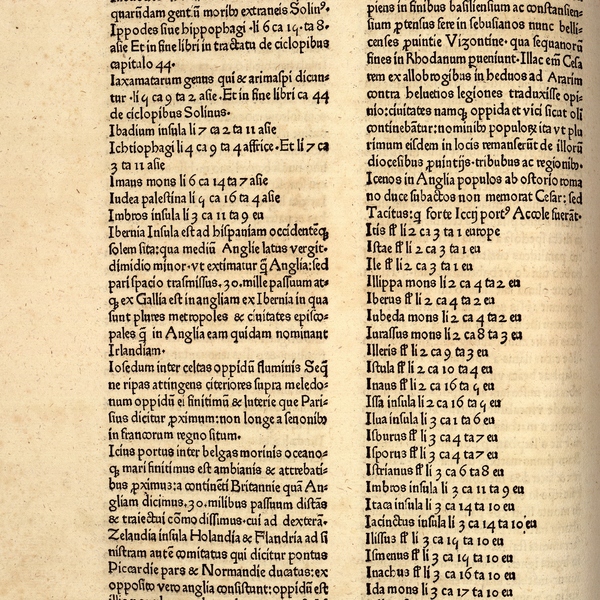 quarūdam gent.ū moribꝰ extraneis Solinꝰ.
Ippodes siue hippophagi .li 6 ca 14. ta 8.
asie Et in fine libri in tractatu de ciclopibus
capitulo 44.
Iaxamatarum genus qui & arimaspi dicun-
tur .li 4 ca 9 ta 2 asie .Et in fine libri ca 44
de ciclopibus Solinus.
Ibadium insula li 7 ca 2 ta 11 asie
Ichtiophagi li 4 ca 9 ta 4 affrice. Et li 7 ca
3 ta 11 asie
Imaus mons li 6 ca 14 ta 7 asie
Iudea palestina li 4 ca 16 ta 4 asie
Imbros insula li 3 ca 11 ta 9 eu
Ibernia Insula est ad hispaniam occidentēq̧
solem sita: qua mediū Anglie latus vergit.
dimidio minor. vt extimatur q̄ Anglia: sed
pari spacio trasmissus. 30. mille passuum at-
q̧ ex Gallia est in angliam ex Ibernia in qua
sunt plures metropoles & ciuitates episco-
pales q̄ in Anglia eam quidam nominant
Irlandiam.
Iosedum inter celtas oppidū fluminis Seq̄
ne ripas attingens citeriores supra meledo-
num oppidū ei finitimū & luterie que Pari-
sius dicitur ꝓximum: non longe a senonibꝰ
in francorum regno situm.
Icius portus inter belgas morinis oceano-
q̧ mari finitimus est ambianis & attrebati-
bus ꝓximus: a continēti Britannie quā An-
gliam dicimus. 30. milibus passuum distās
& traiectui cōmodissimus. cui ad dexterā.
Zelandia insula Holandia & Flandria ad si
nistram autē comitatus qui dicitur pontus
Piccardie pars & Normandie ducatus: ex
opposito vero anglia consistunt: oppidū est
piens in finibus basiliensium ac constansien-
sium ꝓtensus fere in sebusianos nunc belli-
censes ꝓuintie Vizontine. qua sequanorū
fines in Rhodanum ꝓueniunt. Illac em̄ Cesa
rem ex allobrogibus in heduos ad Ararim
contra heluetios legiones traduxisse opi-
nio: ciuitates namq̧ oppida et vici sicut oli
continebātur: nominibꝰ populorꝝ ita vt plu
rimum eisdem in locis remanserūt de illorū
diocesibus ꝓuintijs. tribubus ac regionibꝰ.
Icenos in Anglia populos ab ostorio roma
no duce subactos non memorat Cesar: sed
Tacitus: q̧ forte Iccij portꝰ Accole fuerāt.
Itis fl̄ li 2 ca 3 ta 1 europe
Istae fl̄ li 2 ca 3 ta 1 eu
Ile fl̄ li 2 ca 3 ta 1 eu
Illippa mons li 2 ca 4 ta 2 eu
Iberus fl̄ li 2 ca 4 ta 2 eu
Iubeda mons li 2 ca 4 ta 2 eu
Iurassus mons li 2 ca 8 ta 3 eu
Illeris fl̄ li 2 ca 9 ta 3 eu
Istula fl̄ li 2 ca 10 ta 4 eu
Inaus fl̄ li 2 ca 16 ta 4 eu
Issa insula li 2 ca 16 ta 4 eu
Ilua insula li 3 ca 1 ta 6 eu
Isburus fl̄ li 3 ca 4 ta 7 eu
Isporus fl̄ li 3 ca 4 ta 7 eu
Istrianus fl̄ li 3 ca 6 ta 8 eu
Imbros insula li 3 ca 11 ta 9 eu
Itaca insula li 3 ca 14 ta 10 eu
Iacinctus insula li 3 ca 14 ta 10 eu
Ilissus fl̄ li 3 ca 14 ta 10 eu
Ismenus fl̄ li 3 ca 14 ta 10 eu
Inachus fl̄ li 3 ca 16 ta 10 eu
Ida mons li 3 ca 17 ta 10 eu